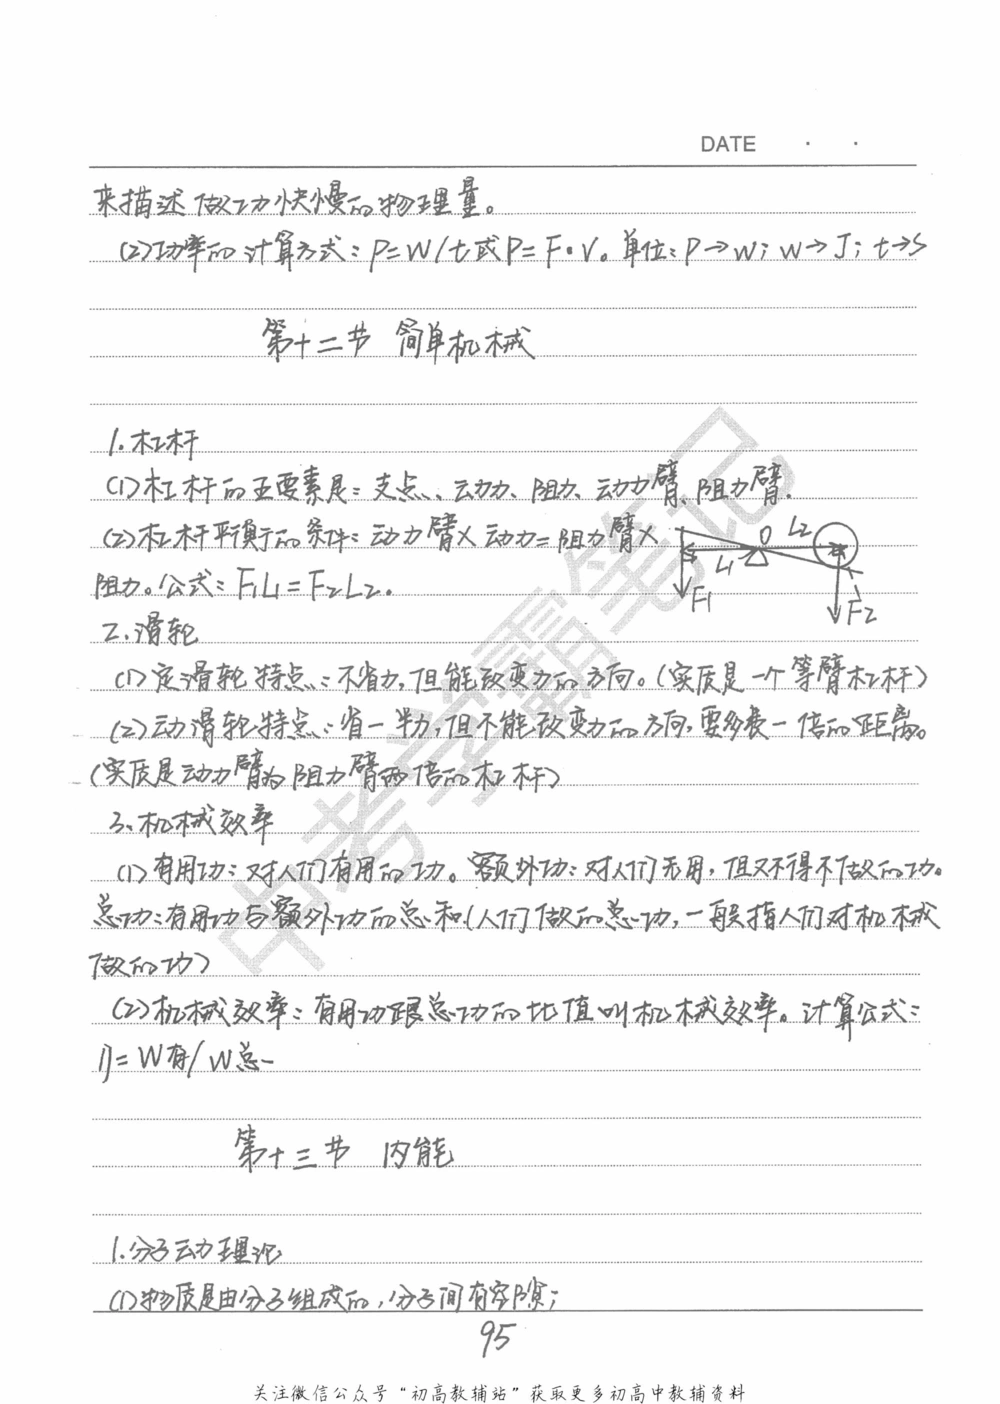 DATE · ·
来描述做功快慢的物理量。
(2)功率的计算方式：P=W/t或P=F·V。单位：P→w；w→J；t→s
第十二节 简单机械
1.杠杆
(1)杠杆的五要素是：支点、动力、阻力、动力臂、阻力臂.
(2)杠杆平衡的条件：动力臂×动力=阻力臂×
阻力。公式：F1L1=F2L2.
O L2
L1
F1 F2
2.滑轮
(1)定滑轮特点：不省力,但能改变力的方向。(实质是一个等臂杠杆)
(2)动滑轮特点：省一半力,但不能改变力的方向,要多费一倍的距离。
(实质是动力臂为阻力臂两倍的杠杆)
3.机械效率
(1)有用功：对人们有用的功。额外功：对人们无用,但又不得不做的功。
总功：有用功与额外功的总和(人们做的总功,一般指人们对机械
做的功)
(2)机械效率：有用功跟总功的比值叫机械效率。计算公式：
η=W有/W总
第十三节 内能
1.分子动力理论
(1)物质是由分子组成的,分子间有空隙;
95
中考学霸笔记
关注微信公众号“初高教辅站”获取更多初高中教辅资料